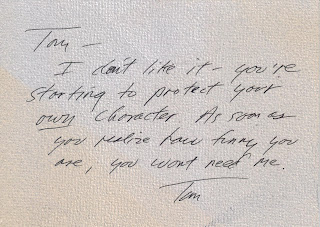 Tom –
I don't like it – you're
starting to protect your
own character. As soon as
you realize how funny you
are, you wont need me.
Tom